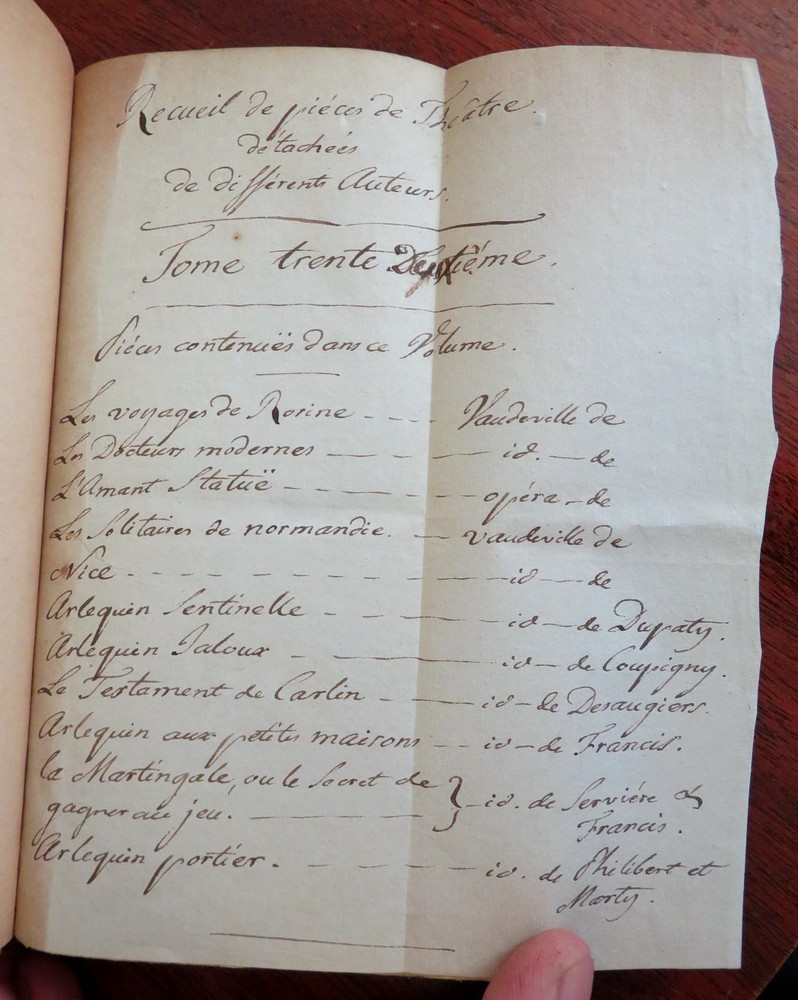 Recueil de piéces de Théâtre.
détachées
de différents Auteurs.
Tome trente Deuxiéme.
Piéces contenuës dans ce Volume.
Les voyages de Rosine - - - Vaudeville de
Les Docteurs modernes - - - id. - de
L'Amant Statuë - - - - opéra - de
Les Solitaires de normandie. - vaudeville de
Nice - - - - - - - - id - de
Arlequin Sentinelle - - - - id - de Dupaty.
Arlequin Jaloux - - - - id - de Coupigny.
Le Testament de Carlin - - - id - de Desaugiers.
Arlequin aux petites maisons - - id - de Francis.
la Martingale, ou le Secret de
gagner au jeu. - - - } - id. de Serviére &
Francis.
Arlequin portier. - - - - id. de Philibert et
Marty.